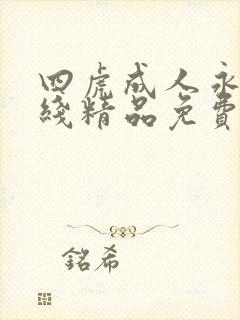 四虎成人永
綫精品免費
銘希